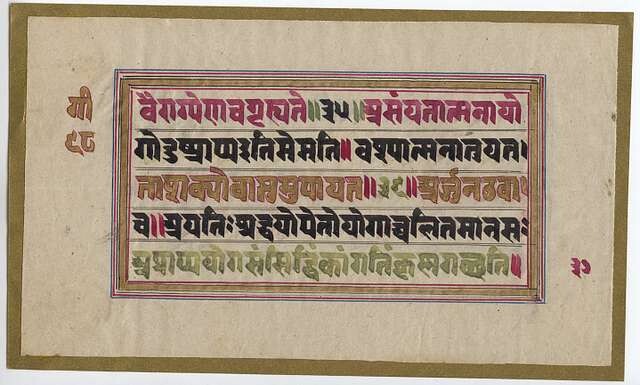 गी
९८
वैराग्येणचगृह्यते॥३५॥असंयतात्मनायो
गोदुष्प्राप्यइतिमेमति॥वश्यात्मनातुयत
ताशक्योवाप्तुमुपायत॥३६॥अर्जुनउवा
च॥अयतिःश्रद्धयोपेतोयोगाच्चलितमानसः
अप्राप्ययोगसंसिद्धिंकांगतिंकृष्णगच्छति॥